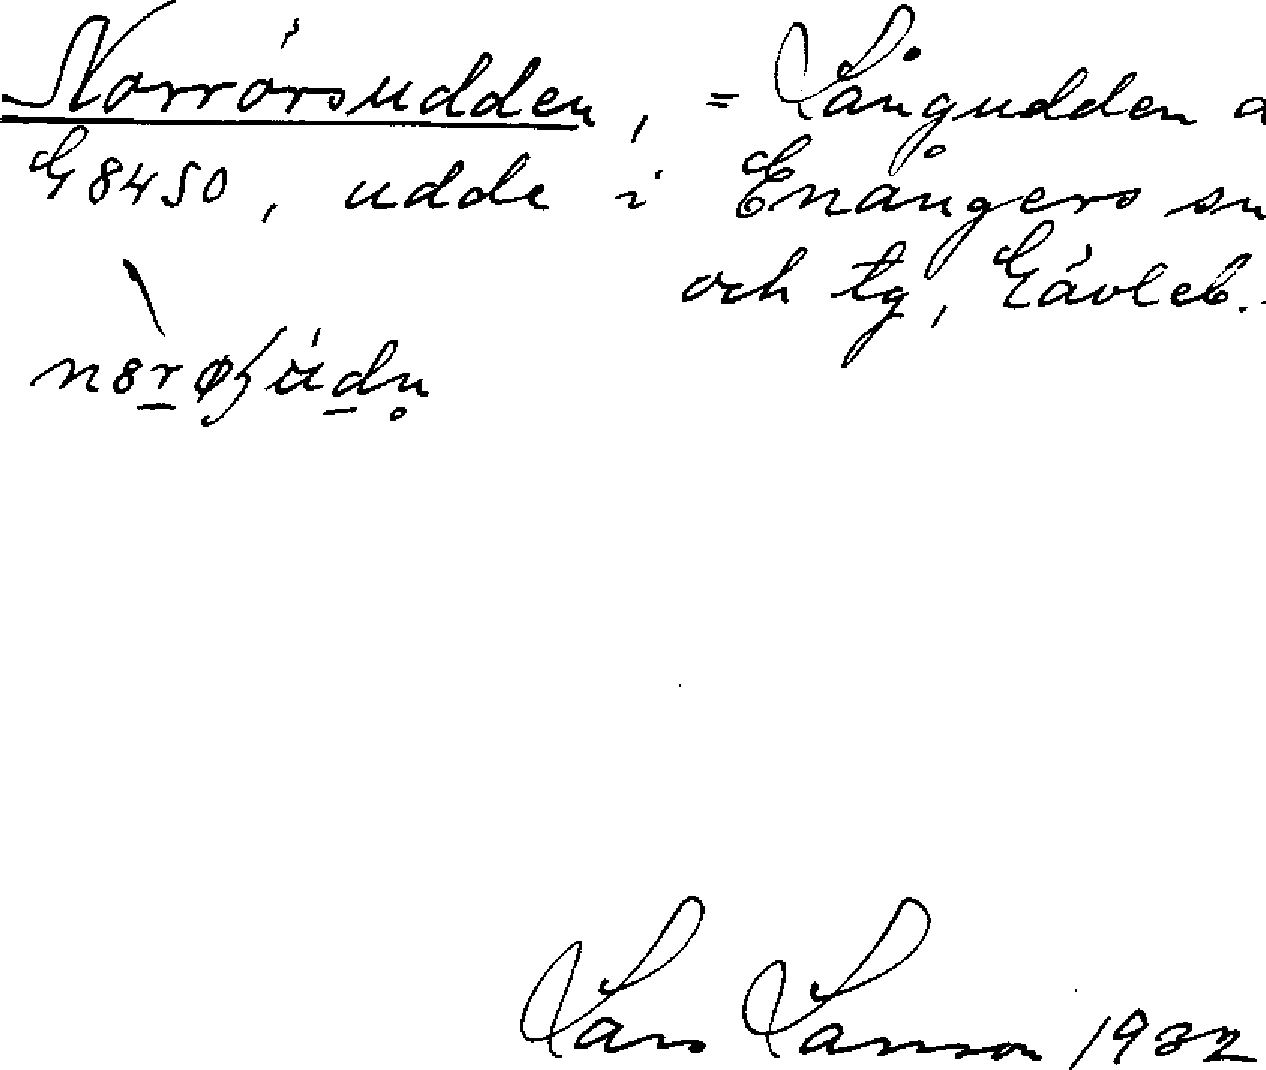 Norrörsudden, = Långudden a
G8450, udde i Enångers sn
och tg, Gävleb.
Lars Larsson 1932